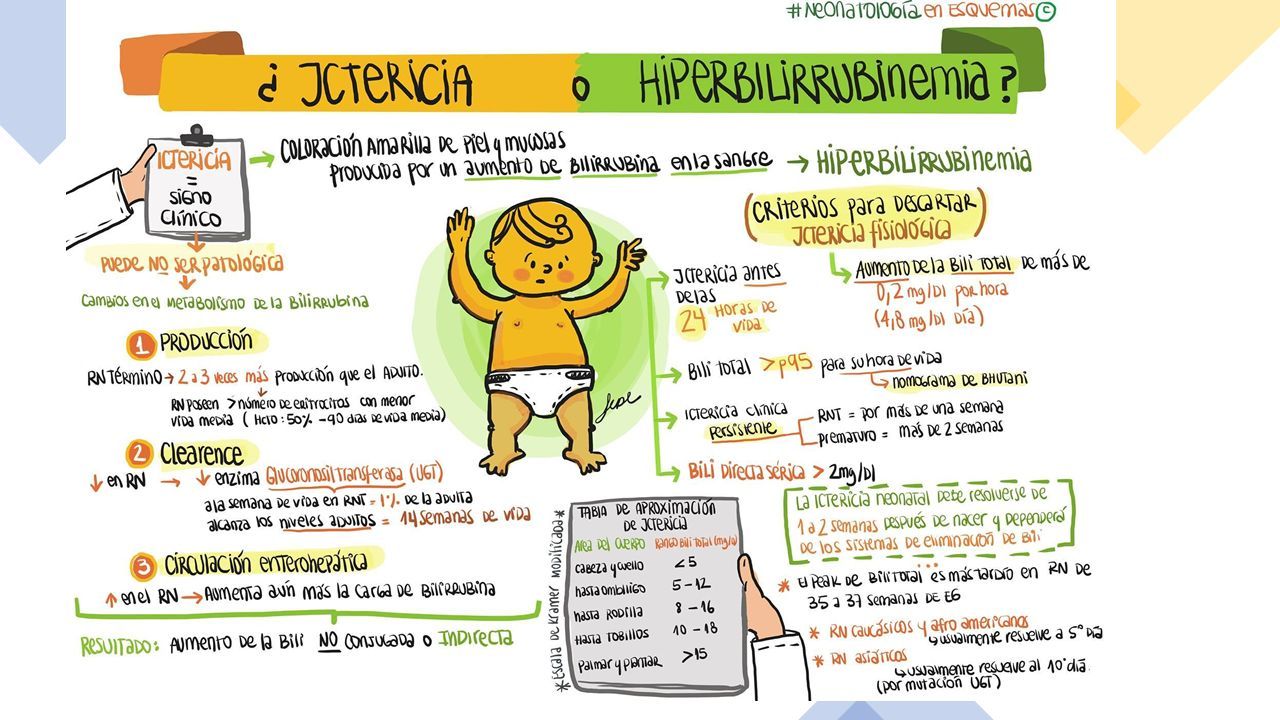 #NEONATOLOGÍA EN ESQUEMAS©
¿ ICTERICIA o HIPERBILIRRUBINEMIA?
ICTERICIA
=
SIGNO
CLÍNICO
COLORACIÓN AMARILLA DE PIEL y MUCOSAS
PRODUCIDA POR UN AUMENTO DE BILIRRUBINA EN LA SANGRE → HIPERBILIRRUBINEMIA
PUEDE NO SER PATOLÓGICA
CAMBIOS EN EL METABOLISMO DE LA BILIRRUBINA
1 PRODUCCIÓN
RN TÉRMINO → 2 a 3 VECES MÁS PRODUCCIÓN QUE EL ADULTO.
RN POSEEN > NÚMERO DE ERITROCITOS CON MENOR
VIDA MEDIA ( HCTO : 50% - 90 DIAS DE VIDA MEDIA)
2 Clearence
↓ EN RN → ↓ ENZIMA GLUCORONOSILTRANSFERASA (UGT)
A LA SEMANA DE VIDA EN RNT = 1% DE LA ADULTA
ALCANZA LOS NIVELES ADULTOS = 14 SEMANAS DE VIDA
3 CIRCULACIÓN ENTEROHEPÁTICA
↑ EN EL RN → AUMENTA AÚN MÁS LA CARGA DE BILIRRUBINA
RESULTADO: AUMENTO DE LA BILI NO CONJUGADA O INDIRECTA
CRITERIOS PARA DESCARTAR
ICTERICIA FISIOLÓGICA
AUMENTO DE LA BILI TOTAL DE MÁS DE
0,2 mg/Dl POR HORA
(4,8 mg/Dl DÍA)
ICTERICIA ANTES
DE LAS
24 HORAS DE
VIDA
BILI TOTAL >P95 PARA SU HORA DE VIDA
NOMOGRAMA DE BHUTANI
ICTERICIA CLÍNICA
PERSISTENTE
RNT = POR MÁS DE UNA SEMANA
PREMATURO = MÁS DE 2 SEMANAS
BILI DIRECTA SÉRICA > 2mg/Dl
*ESCALA DE KRAMER MODIFICADA*
TABLA DE APROXIMACIÓN
DE ICTERICIA
ÁREA DEL CUERPO RANGO BILI TOTAL (mg/dl)
CABEZA Y CUELLO <5
HASTA OMBILIGO 5-12
HASTA RODILLA 8-16
HASTA TOBILLOS 10-18
PALMAR Y PLANTAR >15
LA ICTERICIA NEONATAL DEBE RESOLVERSE DE
1 a 2 SEMANAS DESPUÉS DE NACER Y DEPENDERÁ
DE LOS SISTEMAS DE ELIMINACIÓN DE BILI
* EL PEAK DE BILI TOTAL ES MÁS TARDÍO EN RN DE
35 a 37 SEMANAS DE EG
* RN CAUCÁSICOS Y AFRO AMERICANOS
USUALMENTE RESUELVE A 5º DÍA
* RN ASIÁTICOS
USUALMENTE RESUELVE AL 10º DÍA.
(POR MUTACIÓN UGT)